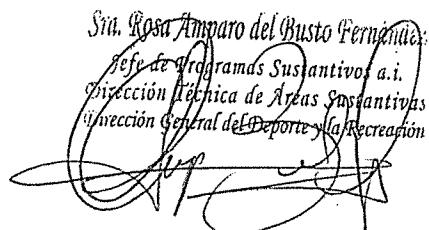 Sra. Rosa Amparo del Busto Fernández
Jefe de Programas Sustantivos a.i.
Dirección Técnica de Áreas Sustantivas
Dirección General del Deporte y la Recreación